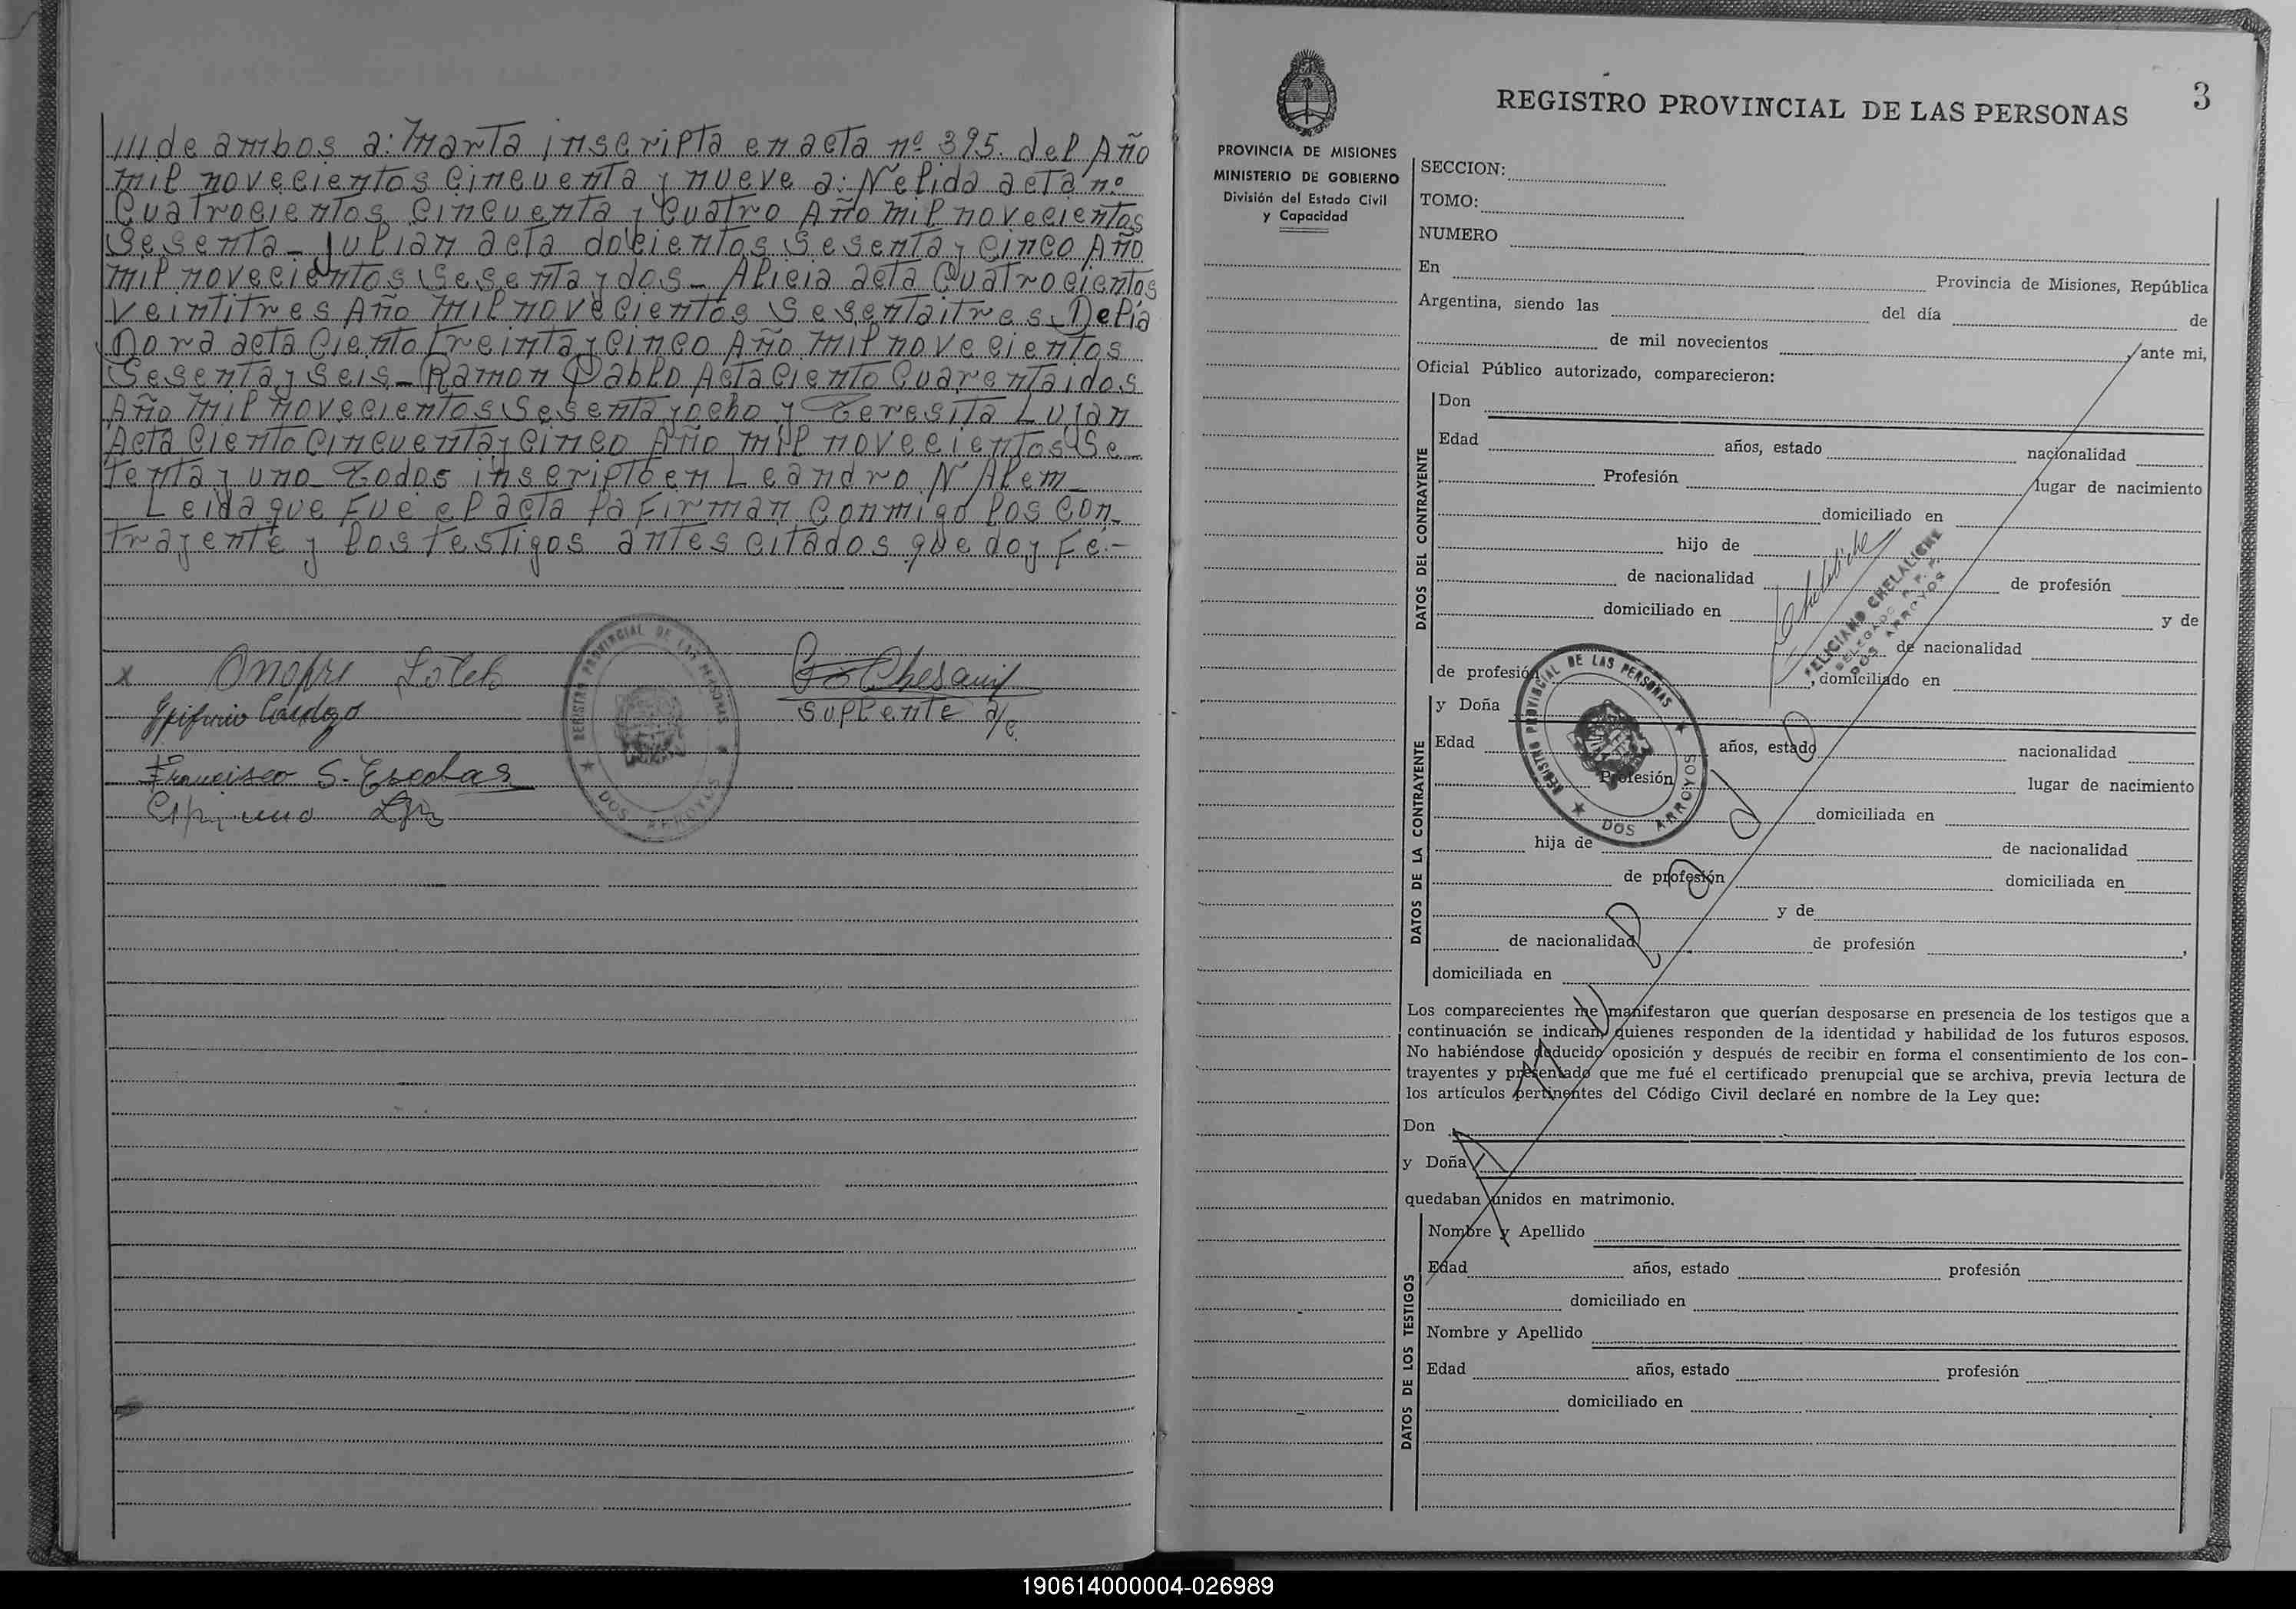 /// de ambos a: Marta inscripta en acta nº 395. del Año
mil novecientos cincuenta y nueve a: Nelida acta nº
Cuatrocientos cincuenta y cuatro Año mil novecientos
Sesenta_ Julian acta docientos sesenta y cinco Año
mil novecientos sesenta y dos_ Alicia acta Cuatrocientos
Veintitres Año mil novecientos sesentaitres. Delia
Dora acta Ciento treinta y cinco Año mil novecientos
Sesenta y seis_ Ramon Pablo Acta Ciento Cuarentaidos
Año mil novecientos sesenta y ocho y Teresita Lujan
Acta Ciento cincuenta y cinco Año mil novecientos Se_
tenta y uno_ Todos inscripto en Leandro N Alem_
Leida que fue el acta la firman conmigo los con_
trayente y los testigos antes citados que doy fe.-
x Onofre
REGISTRO PROVINCIAL DE LAS PERSONAS
DOS ARROYOS
suplente a/c.
Francisco S. Escobar
3
REGISTRO PROVINCIAL DE LAS PERSONAS
PROVINCIA DE MISIONES
MINISTERIO DE GOBIERNO
División del Estado Civil
y Capacidad
SECCION:
TOMO:
NUMERO
En Provincia de Misiones, República
Argentina, siendo las del día de
de mil novecientos ante mi,
Oficial Público autorizado, comparecieron:
DATOS DEL CONTRAYENTE
Don
Edad años, estado nacionalidad
Profesión lugar de nacimiento
domiciliado en
hijo de
de nacionalidad de profesión
domiciliado en y de
de nacionalidad
de profesión , domiciliado en
FELICIANO CHELALICHE
DELEGADO R. P. P.
DOS ARROYOS
REGISTRO PROVINCIAL DE LAS PERSONAS
DOS ARROYOS
DATOS DE LA CONTRAYENTE
y Doña
Edad años, estado nacionalidad
Profesión lugar de nacimiento
domiciliada en
hija de de nacionalidad
de profesión domiciliada en
y de
de nacionalidad de profesión ,
domiciliada en
ANULADO
Los comparecientes me manifestaron que querían desposarse en presencia de los testigos que a
continuación se indican, quienes responden de la identidad y habilidad de los futuros esposos.
No habiéndose deducido oposición y después de recibir en forma el consentimiento de los con-
trayentes y presentado que me fué el certificado prenupcial que se archiva, previa lectura de
los artículos pertinentes del Código Civil declaré en nombre de la Ley que:
Don
y Doña
quedaban unidos en matrimonio.
DATOS DE LOS TESTIGOS
Nombre y Apellido
Edad años, estado profesión
domiciliado en
Nombre y Apellido
Edad años, estado profesión
domiciliado en
190614000004-026989